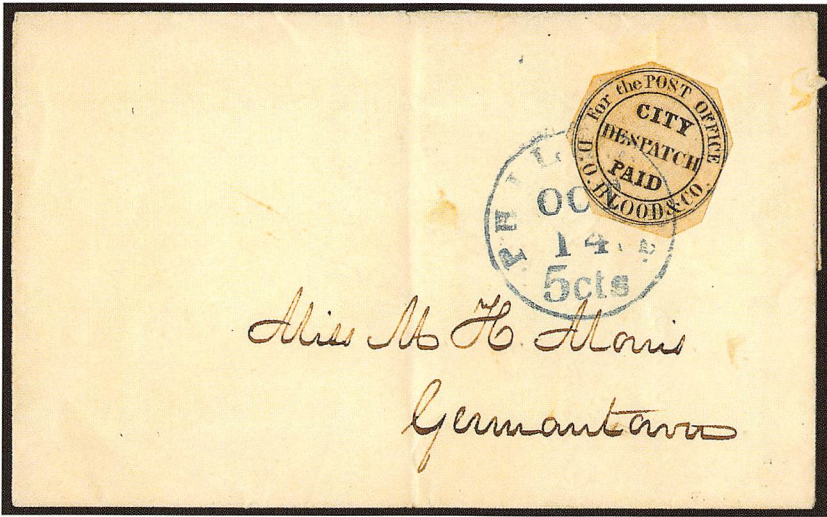 For the POST OFFICE
CITY
DESPATCH
PAID
D.O. BLOOD & CO.
OCT
14
5cts
Miss M H. Morris
Germantown